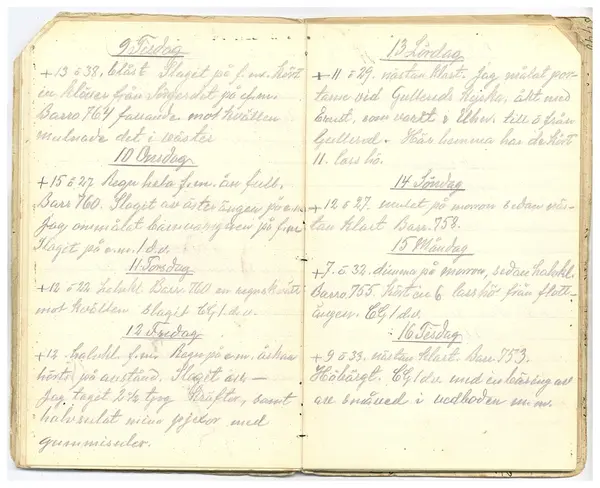 9 Tisdag
+13 ö 38, blåst Slaget på f.m. Kört
in klöver från på e.m.
Baro 764 fallande mot kvällen
mulnade det i väster
10 Onsdag
+15 ö 27 Regn hela f.m. ån full,
Barr 760. Slaget av österängen på e.m
jag på f.m
Slaget på e.m. 1 d.v.
11 Torsdag
+12 ö 22 halvkl. Barr. 760 en regnskvätt
mot kvällen slaget 1 d.v.
12 Fredag
+12 halvkl. f.m. Regn på e.m. åskan
hördes på avstånd. Slaget
Jag taget 2½ tjog Kräftor, samt
halvsulat mina pjexor med
gummisulor.
13 Lördag
+11 ö 29. nästan klart. jag målat por-
tarne vid Gullereds Kyrka, åkt med
Ernst, som varit i till o från
Gullered. Här hemma har de kört
11. lass hö.
14 Söndag
+12 ö 27. mulet på morron sedan näs-
tan klart Barr. 758.
15 Måndag
+7 ö 32. dimma på morron, sedan halvkl.
Barro 755 kört in 6 lass hö från
ängen. 1 d.v.
16 Tisdag
+9 ö 33. nästan klart. Barr. 753.
Höbärgt. 1 dv. med inbäring av
av småved i vedboden m.m.